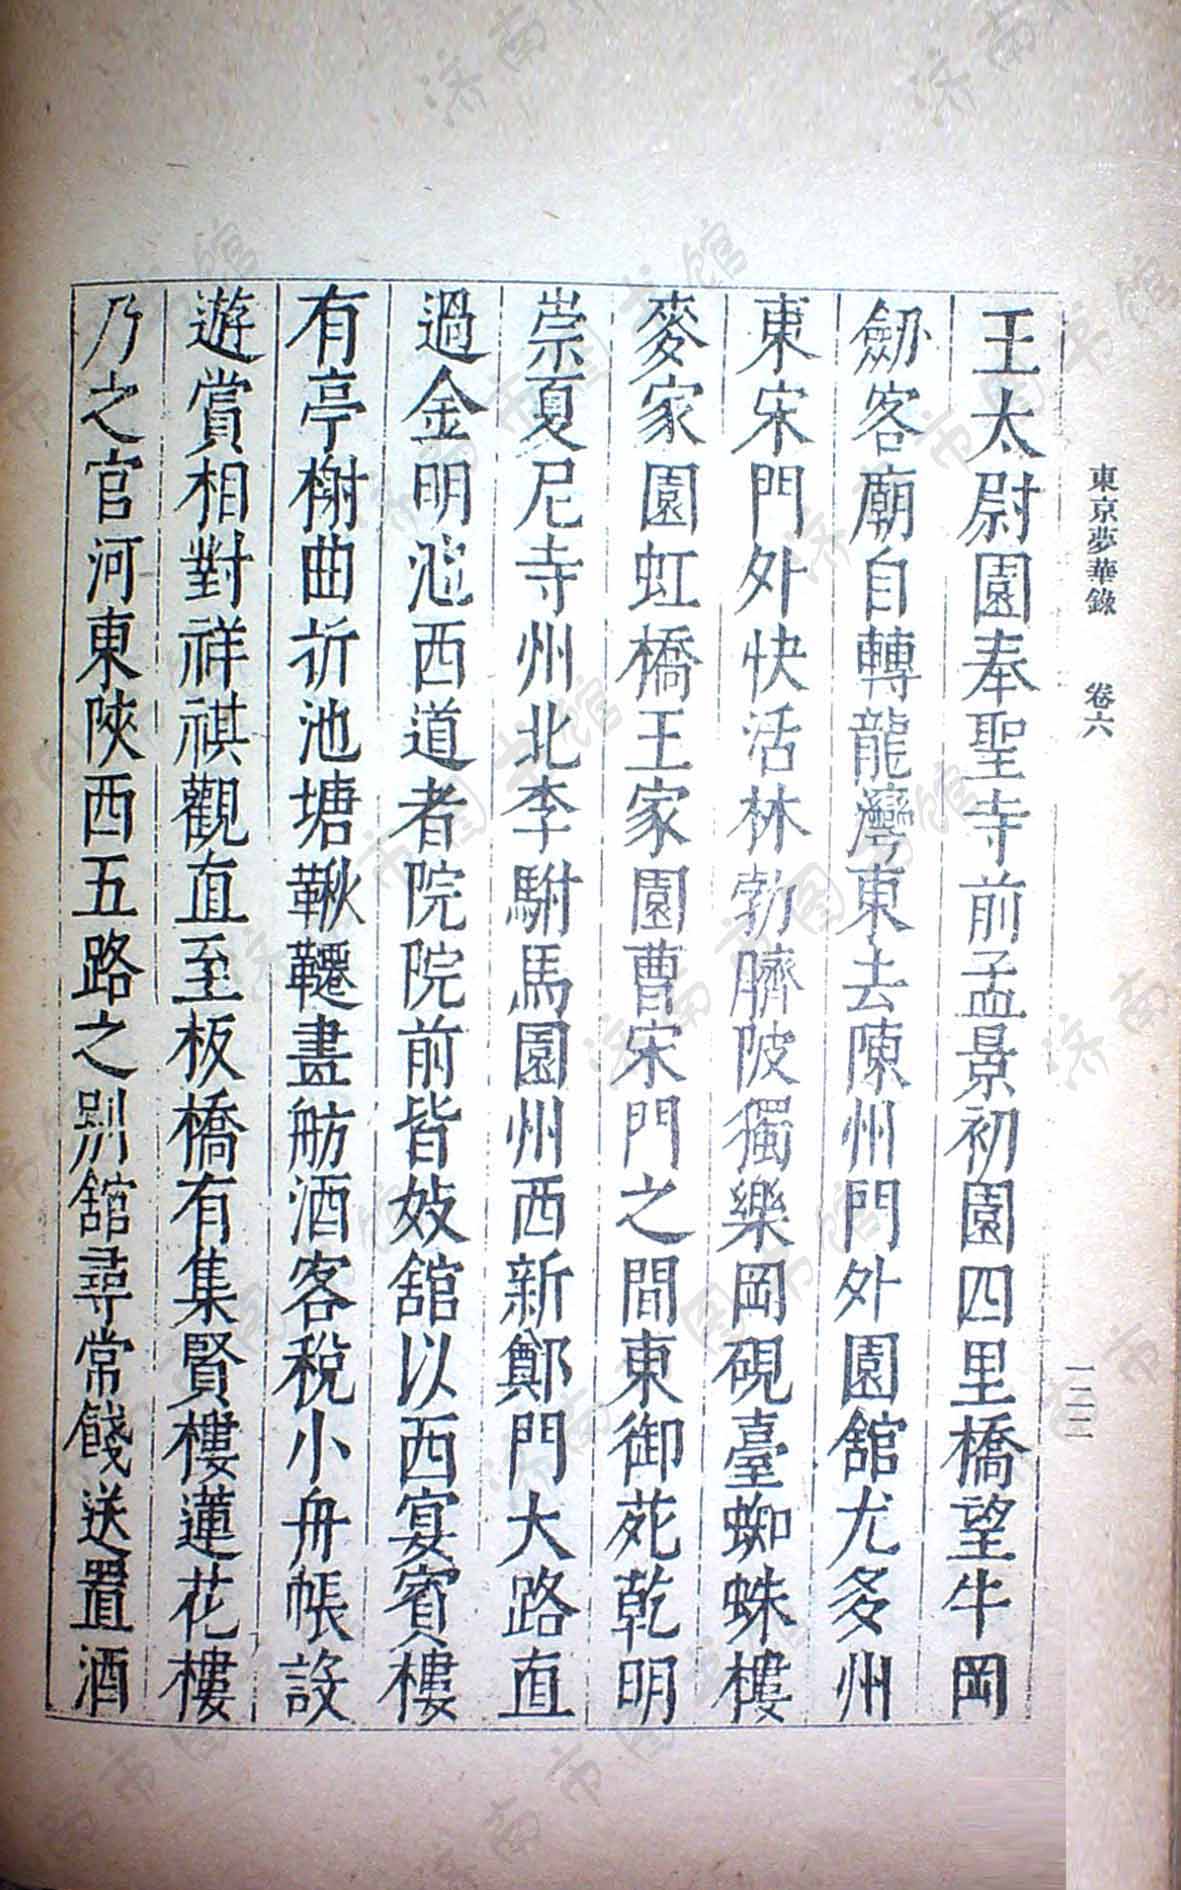 東京夢華錄 卷六 一二二
王太尉園奉聖寺前孟景初園四里橋望牛岡
劒客廟自轉龍灣東去陳州門外園舘尤多州
東宋門外快活林勃臍陂獨樂岡硯臺蜘蛛樓
麥家園虹橋王家園曹宋門之間東御苑乾明
崇夏尼寺州北李駙馬園州西新鄭門大路直
過金明池西道者院院前皆妓舘以西宴賓樓
有亭榭曲折池塘鞦韆畫舫酒客稅小舟帳設
遊賞相對祥祺觀直至板橋有集賢樓蓮花樓
乃之官河東陝西五路之别舘尋常餞送置酒
济南市图书馆